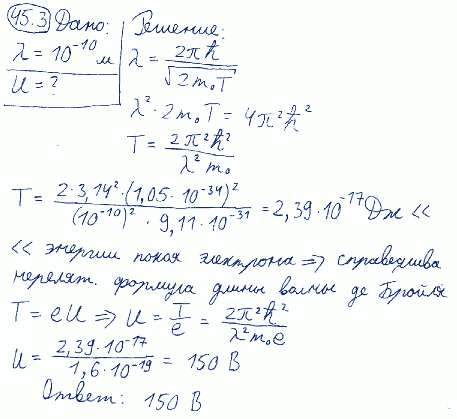 45.3 Дано: Решение:
λ = 10⁻¹⁰ м
U = ?
λ = 2πħ / √(2m₀T)
λ² · 2m₀T = 4π²ħ²
T = 2π²ħ² / λ²m₀
T = 2·3,14²·(1,05·10⁻³⁴)² / (10⁻¹⁰)² · 9,11·10⁻³¹ = 2,39·10⁻¹⁷ Дж <<
<< энергии покоя электрона => справедлива
нерелят. формула длины волны де Бройля
T = eU => U = T/e = 2π²ħ² / λ²m₀e
U = 2,39·10⁻¹⁷ / 1,6·10⁻¹⁹ = 150 В
Ответ: 150 В